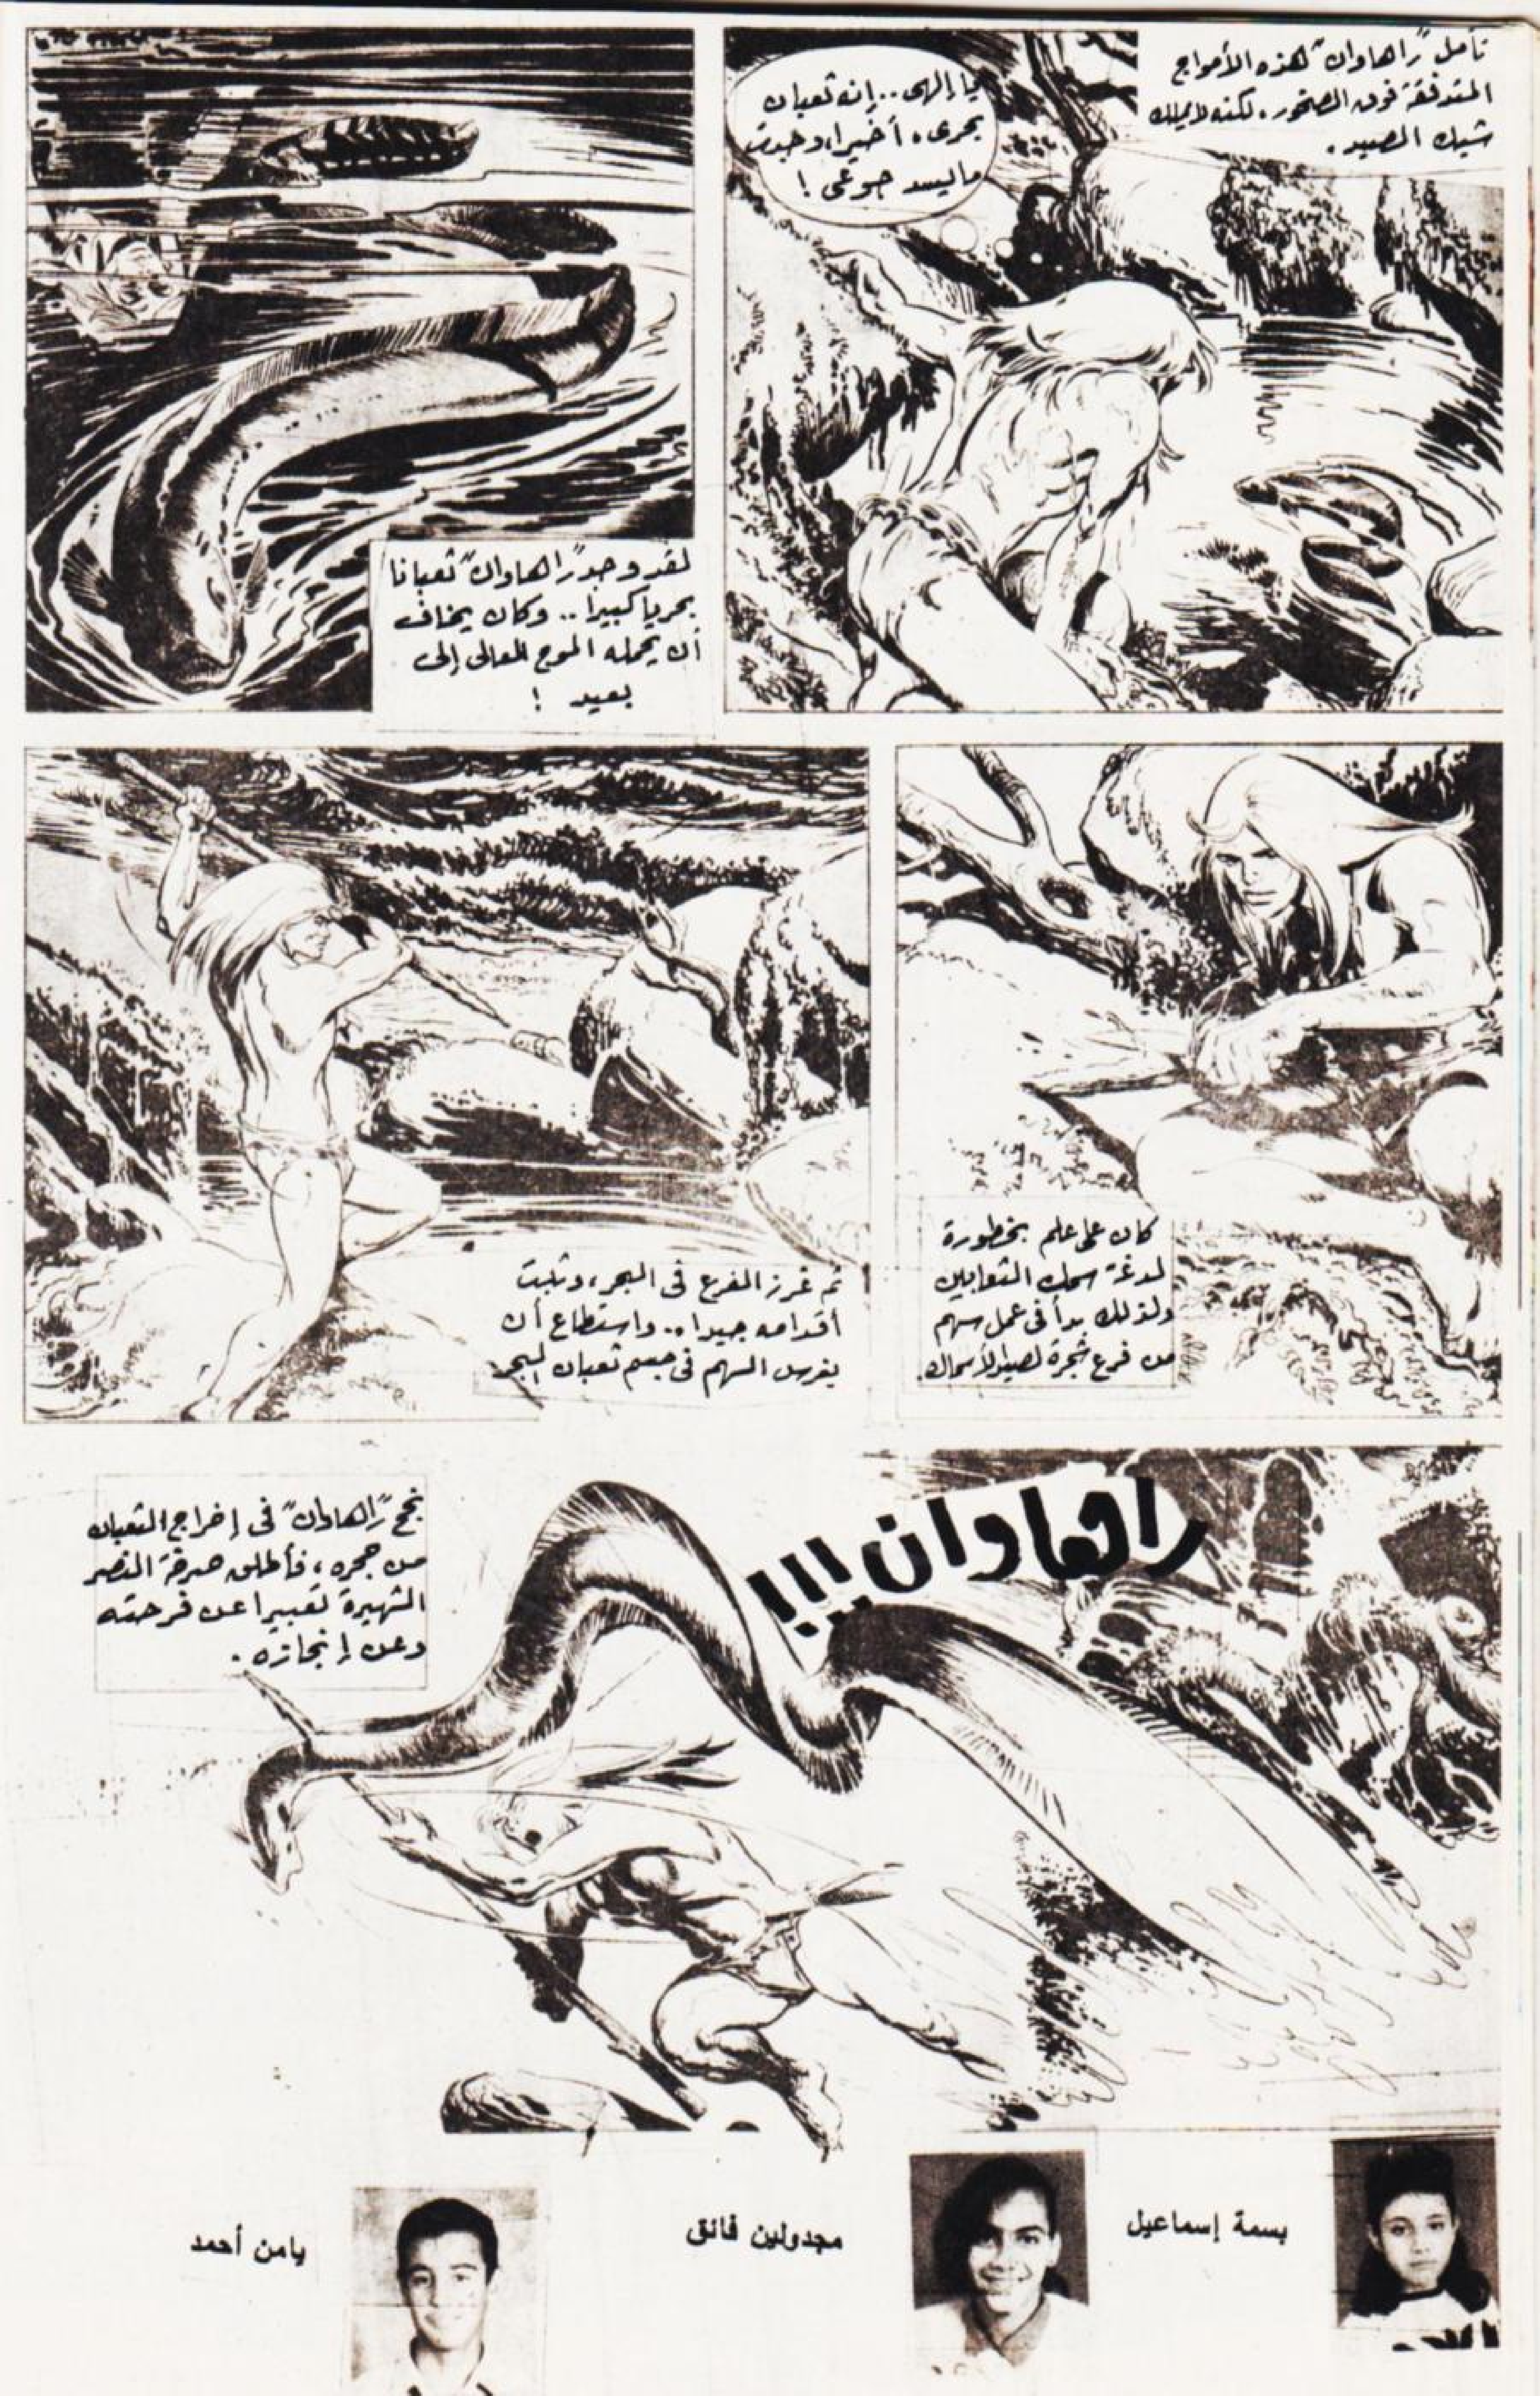 تأمل "راهاوان" لهذه الأمواج
المتدفقة فوق الصخور. لكنه لا يملك
شبك الصيد.
يا إلهى.. إنه ثعبان
بحرى، أخيرا، وجدت
ما يسد جوعى !
لقد وجد "راهاوان" ثعبانا
بحريا كبيرا .. وكان يخاف
أن يحمله الموج العالى إلى
بعيد !
كان على علم بخطورة
لدغة سمك الثعابين
ولذلك بدأ فى عمل سهم
من فرع شجرة لصيد الأسماك.
ثم غرز الفرع فى البحر، وثبت
أقدامه جيدا.. واستطاع أن
يغرس السهم فى جسم ثعبان البحر
راهاوان!!!
نجح "راهاوان" فى إخراج الثعبان
من جحره، فأطلق صرخة النصر
الشهيرة تعبيرا عن فرحته
وعن إنجازه.
بسمة إسماعيل
مجدولين فائق
يامن أحمد